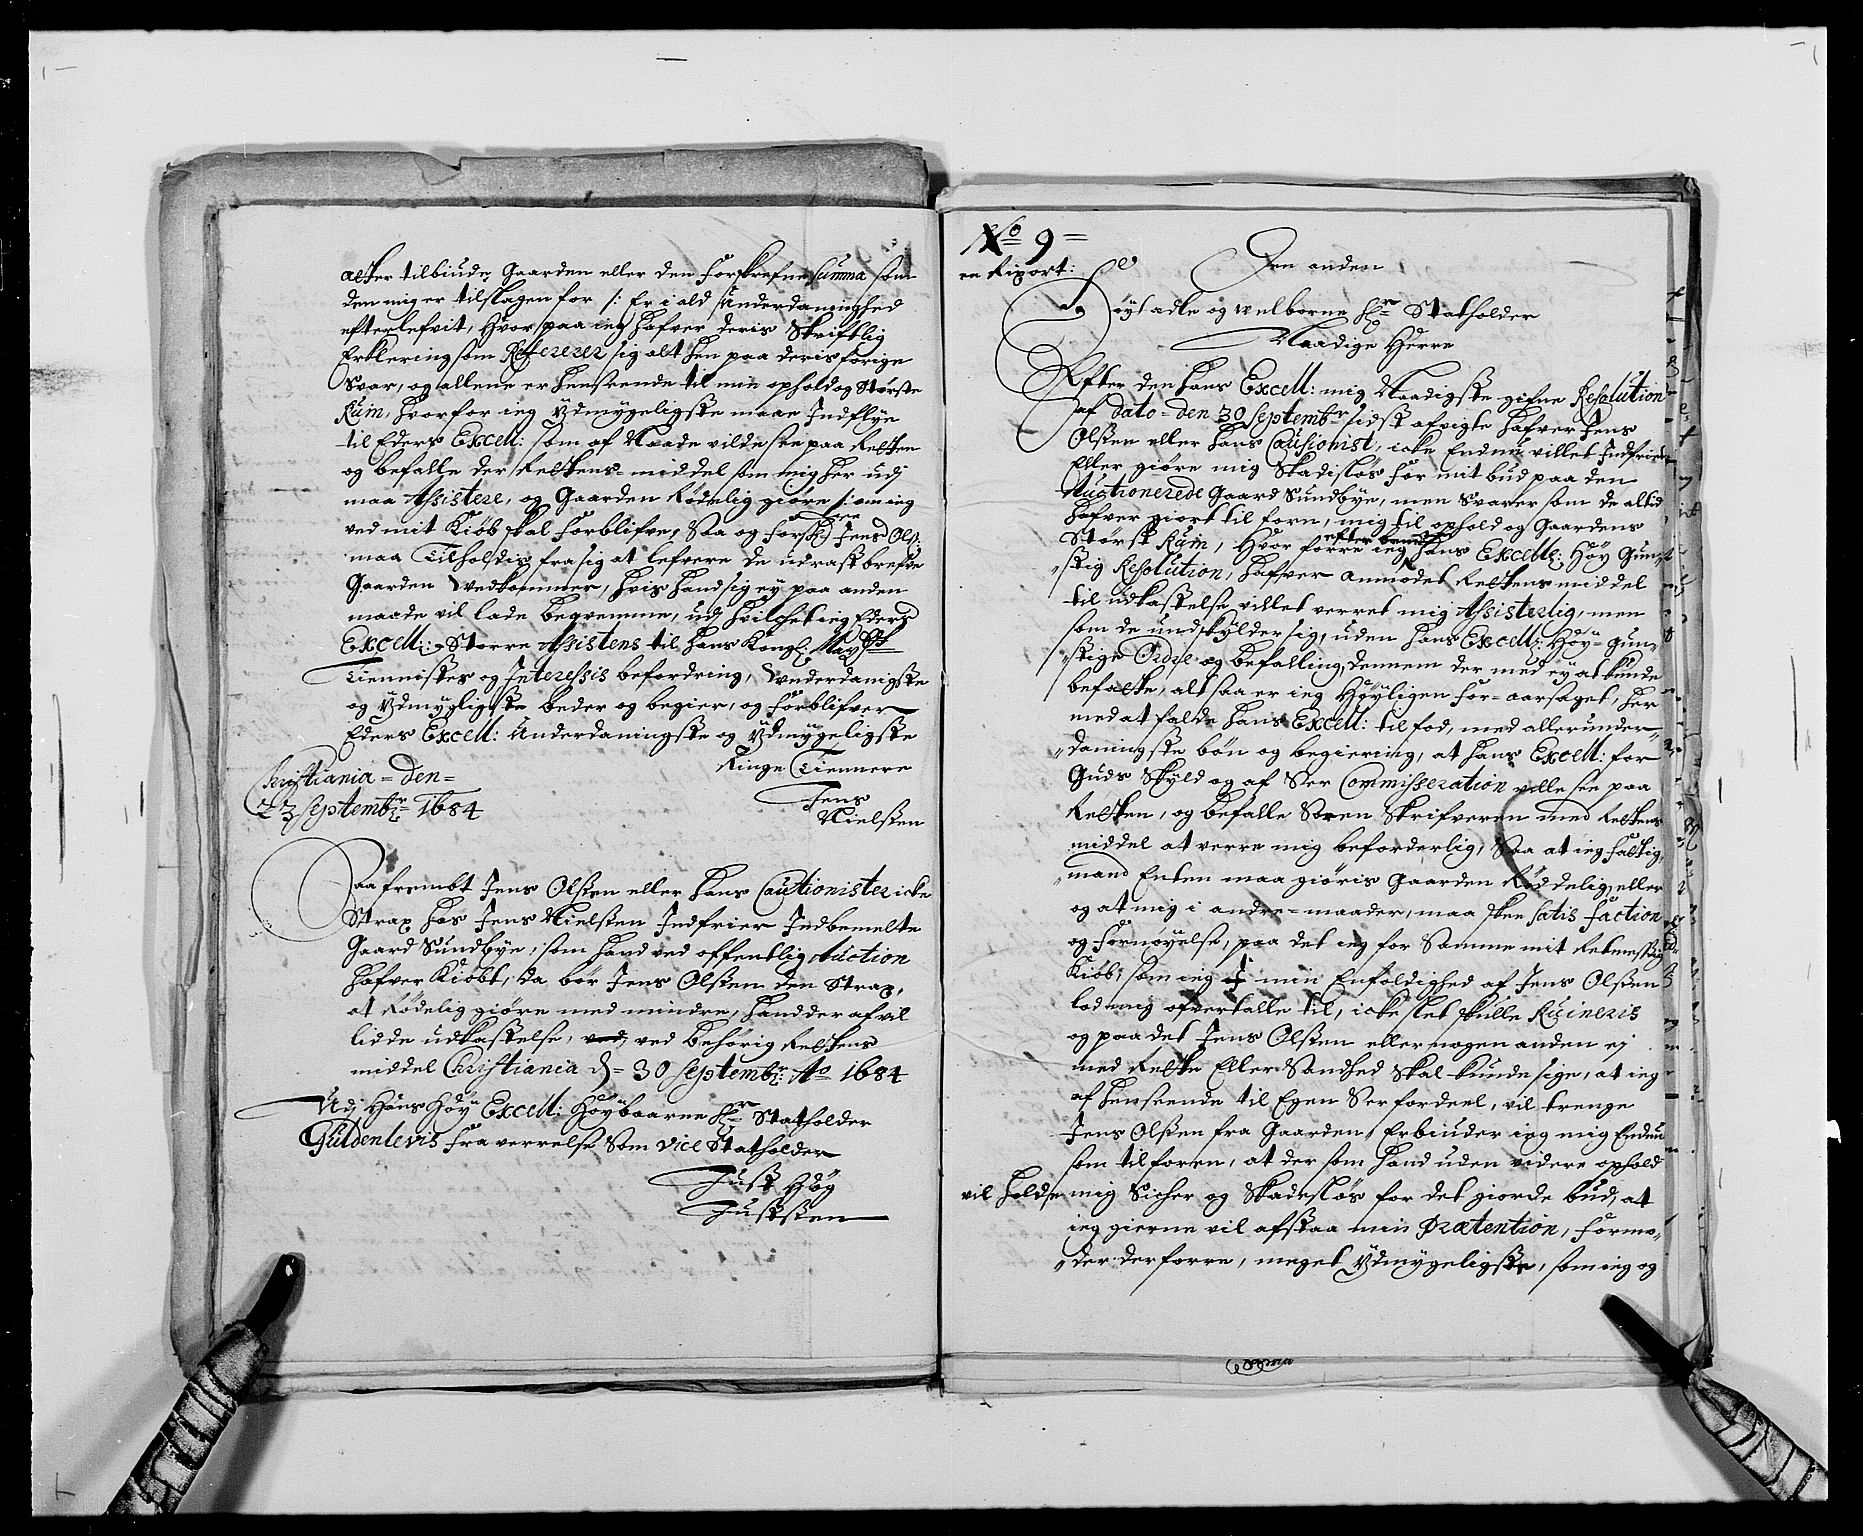 atter tilbiude Gaarden eller den forskrefne Summa som
den mig er tilslagen for /: Er i ald Underdaninghed
efterlefvit, hvor paa ieg hafver deris Skriftlig
Erklering som Refererer sig alt hen paa deris forige
Svar, og allene er henseende til min ophold og Største
Ruin, hvorfor ieg ÿdmygeligste maae Indflye
til Eders Excell: som af Naade vilde see paa Retten
og befalle der Rettens middel som mig her udj
maa Assistere, og Gaarden Rødelig giøre som ieg
ved mit Kiøb skal forblifve, Saa og forschr: Jens Ols:
maa Tilholdis fra sig at lefvere de udraabs brefve
Gaarden Vedkommer, hvis hand sig ey paa anden
maade vil lade beqvemme, udj hvilchet ieg Eders
Excell: Større Assistens til Hans Kongl: Mayts
Tiennistes og Interessis befordring, Underdanigste
og ÿdmygligste beder og begier, og forblifver
Eders Excell: Underdaningste og ÿdmygeligste
Ringe Tiennere
Christiania = den =
23 Septembr: 1684
Jens
Nielssen
Saa frembt Jens Olssen eller hans Cautionister icke
Strax hos Jens Nielssen Indfrier Indbemelte
Gaard Sundbye, som hand ved offentlig Auction
hafver Kiøbt, da bør Jens Olssen den Strax,
at Rødelig giøre med mindre, hand der af vil
lidde udkastelse, ved behørig Rettens
middel Christiania d = 30 Septembr: Ao 1684
Udj Hans Høy Excell: Høybaarne Hr Statholder
Güldenlevis fra verrelse Som Vice Statholder
Just Høg
Justssen
No 9 =
en Riport:
Den anden
Høyl adle og welborne Hr Statholder
Naadige Herre
Efter den hans Excell: mig Naadigste gifne Resolution
af dato = den 30 Septembr sidst afvigte hafver Jens
Olssen eller hans Causionist, icke Endnu villet Indfrie
Eller giøre mig Skadisløs for mit bud paa den
Auctionerede Gaard Sundbye, men Svarer som de altid
hafver giort til forn, mig til ophold og Gaardens
Størst Ruin, Hvor forre ieg efter hans Excell: Høy Gun„
„stig Resolution, hafver anmodet Rettens middel
til udkastelse, villet verret mig Assisterlig, men
som de undskylder sig, uden hans Excell: Høy = Gun„
„stige Ordre og befalling, dennem der med ey at kunde
befatte, alt saa er ieg Høyligen for = aarsaget, her
med at falde hans Excell: til fod, med allerunder„
„daningste bøn og begiering, at hans Excell: for
Guds Skyld og af Ser Commisseration ville see paa
Retten, og befalle Soren Skrifveren med Rettens
middel at verre mig beforderlig, Saa at ieg fattig„
„mand Enten maa giøris Gaarden Røddelig, eller
og at mig i andre = maader, maa skee Satisfaction
og fornøyelse, paa det ieg for Samme mit Retmessig
Kiøb, som ieg min Enfoldighed af Jens Olssen
lod mig ofvertalle til, icke slet skulle Ruineris
og paa det Jens Olssen eller nogen anden ej
med Rette Eller Sandhed skal kunde sige, at ieg
af henseende til Egen Ser fordeel, vil trenge
Jens Olssen fra Gaarden, Erbiuder ieg mig Endnu
som tilforen, at der som hand uden videre ophold
vil holde mig Sicher og Skadesløs for det giorde bud, at
ieg gierne vil afstaa min Prætention, formo„
„der derforre, meget ÿdmygeligste, som ieg og